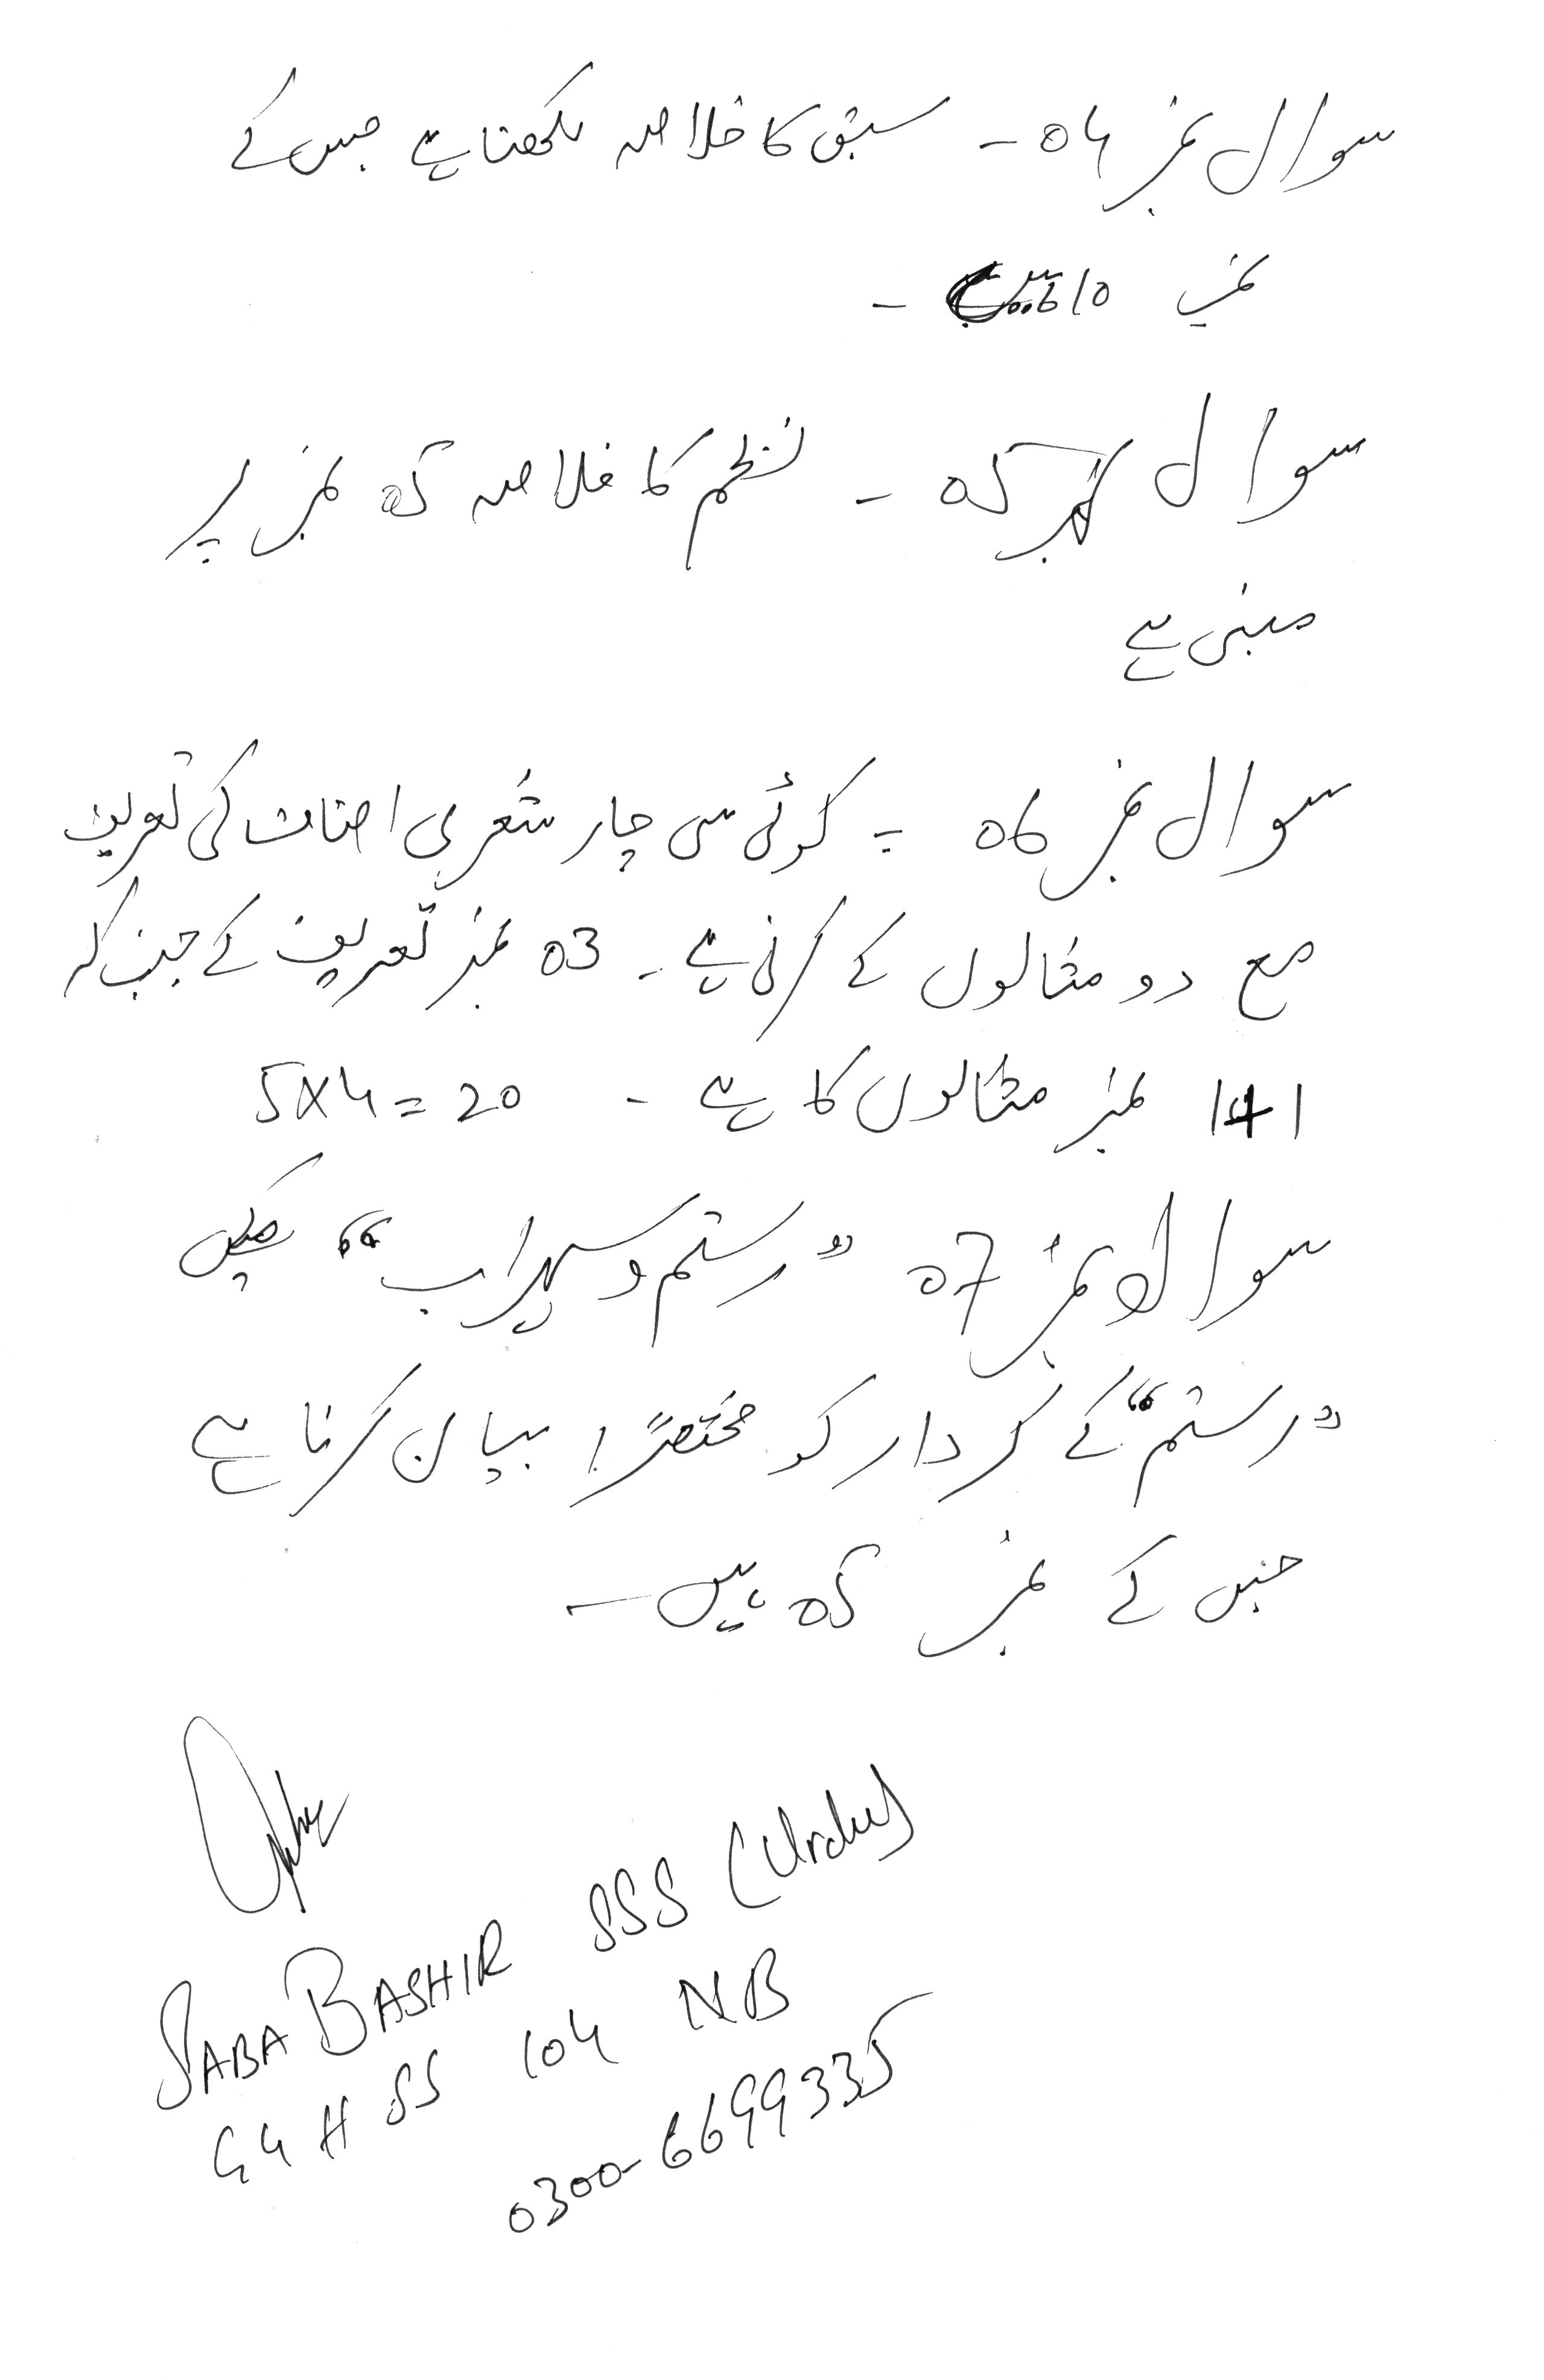 سوال نمبر 04 - سبق کا خلاصہ لکھنا ہے جس کے
نمبر 10 ہیں -
سوال نمبر 05 - نظم کا خلاصہ 05 نمبر پر
مبنی ہے
سوال نمبر 06 - کوئی سی چار شعری اصناف کی تعریف
مع دو مثالوں کے کرنی ہے - 03 نمبر تعریف کے جب کہ
1+1 نمبر مثالوں کا ہے - 5x4=20
سوال نمبر 07 "رستم و سہراب" میں
"رستم" کے کردار کو مختصراً بیان کرنا ہے
جس کے نمبر 05 ہیں -
SABA BASHIR SSS (Urdu)
GGHSS 104 NB
0300-6699335